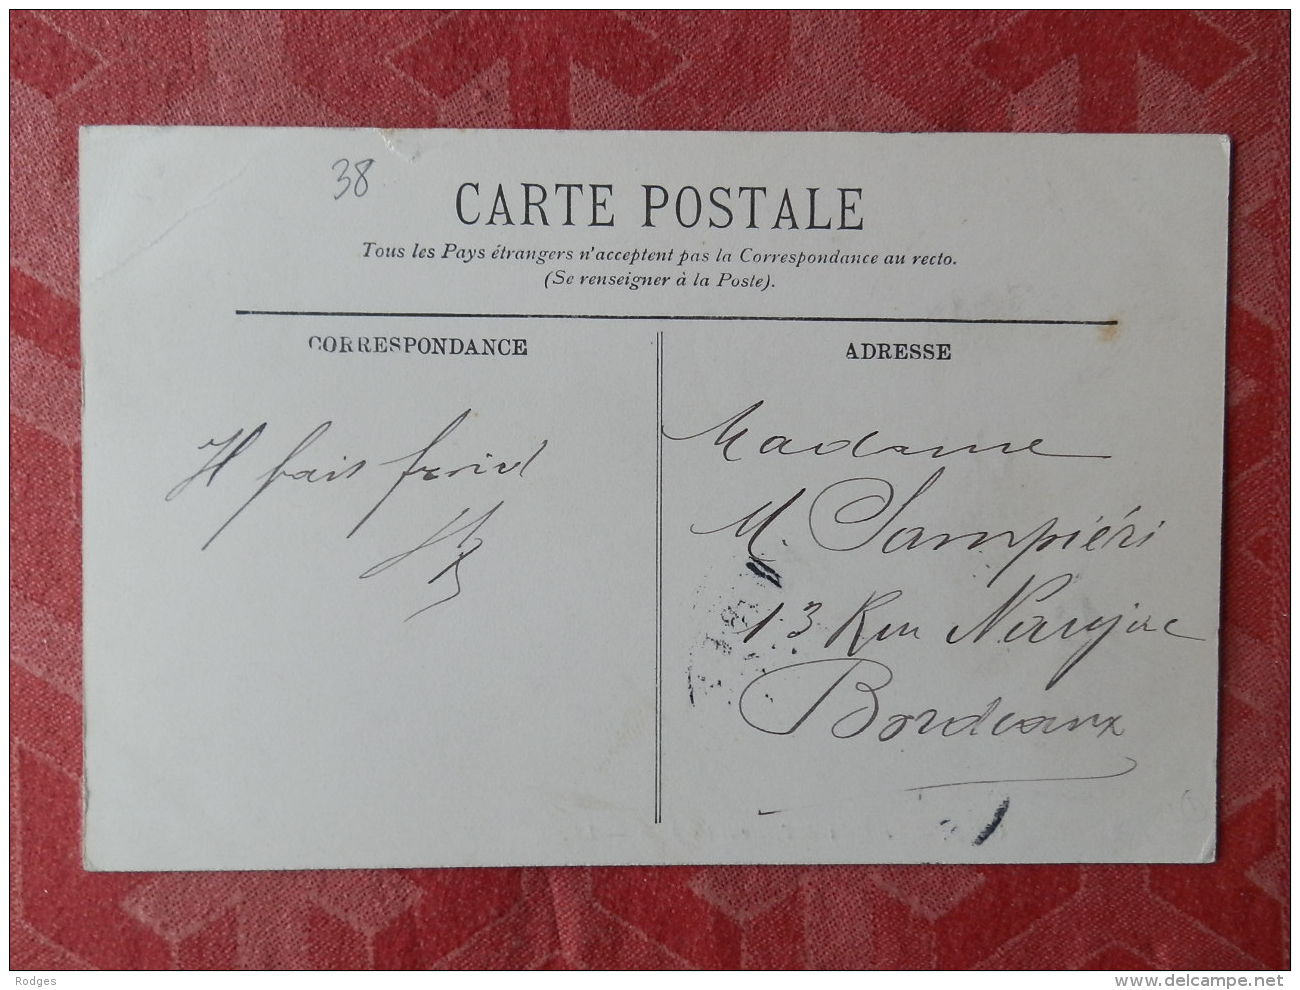 38
CARTE POSTALE
Tous les Pays étrangers n'acceptent pas la Correspondance au recto.
(Se renseigner à la Poste).
CORRESPONDANCE
Il fait froid
ADRESSE
Madame
M. Sampiéri
13 Rue Naujac
Bordeaux
Rodges
www.delcampe.net